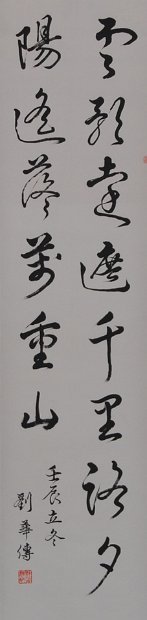 雲影遠遮千里路夕
陽遙落萬重山
壬辰立冬
劉華傳